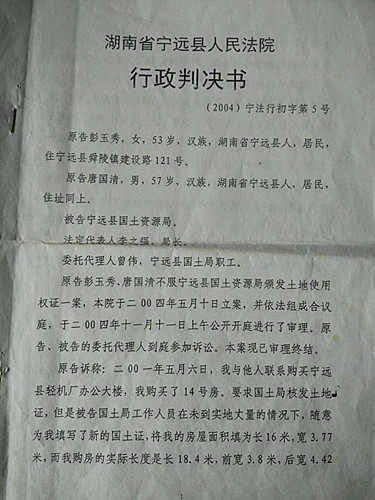 湖南省宁远县人民法院
行政判决书
（2004）宁法行初字第5号
原告彭玉秀，女，53岁，汉族，湖南省宁远县人，居民，
住宁远县舜陵镇建设路121号。
原告唐国清，男，57岁，汉族，湖南省宁远县人，居民，
住址同上。
被告宁远县国土资源局。
法定代表人李之强，局长。
委托代理人曾伟，宁远县国土局职工。
原告彭玉秀、唐国清不服宁远县国土资源局颁发土地使用
权证一案，本院于二00四年五月十日立案，并依法组成合议
庭，于二00四年十一月十一日上午公开开庭进行了审理。原
告、被告的委托代理人到庭参加诉讼。本案现已审理终结。
原告诉称：二00一年五月六日，我与他人联系购买宁远
县轻机厂办公大楼，我购买了14号房。要求国土局核发土地
证，但是被告国土局工作人员在未到实地丈量的情况下，随意
为我填写了新的国土证，将我的房屋面积填为长16米，宽3.77
米，而我购房的实际长度是长18.4米，前宽3.8米，后宽4.42